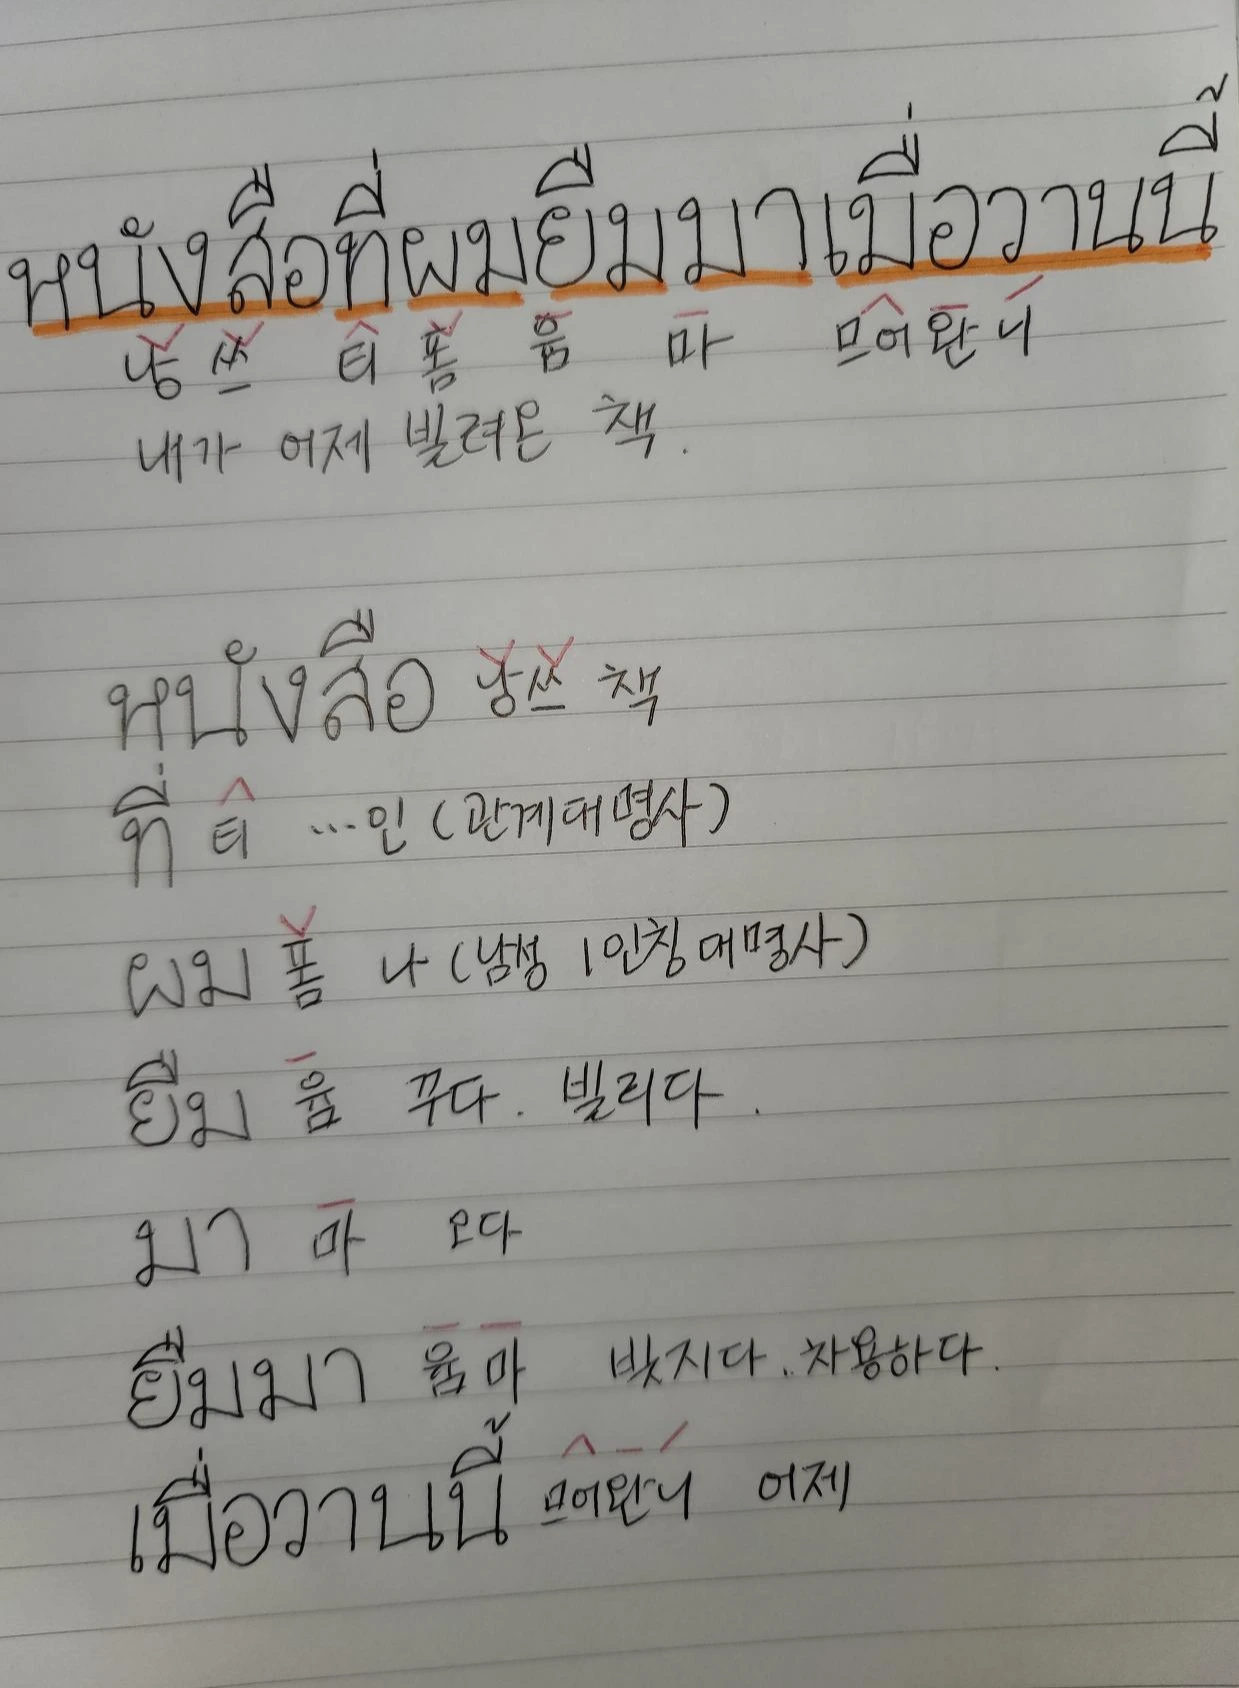 หนังสือที่ผมยืมมาเมื่อวานนี้
낭 쓰 티 폼 윰 마 므어 완 니
내가 어제 빌려온 책.
หนังสือ 낭쓰 책
ที่ 티 ...인 (관계대명사)
ผม 폼 나 (남성 1인칭대명사)
ยืม 윰 꾸다. 빌리다.
มา 마 오다
ยืมมา 윰마 빚지다. 차용하다.
เมื่อวานนี้ 므어완니 어제